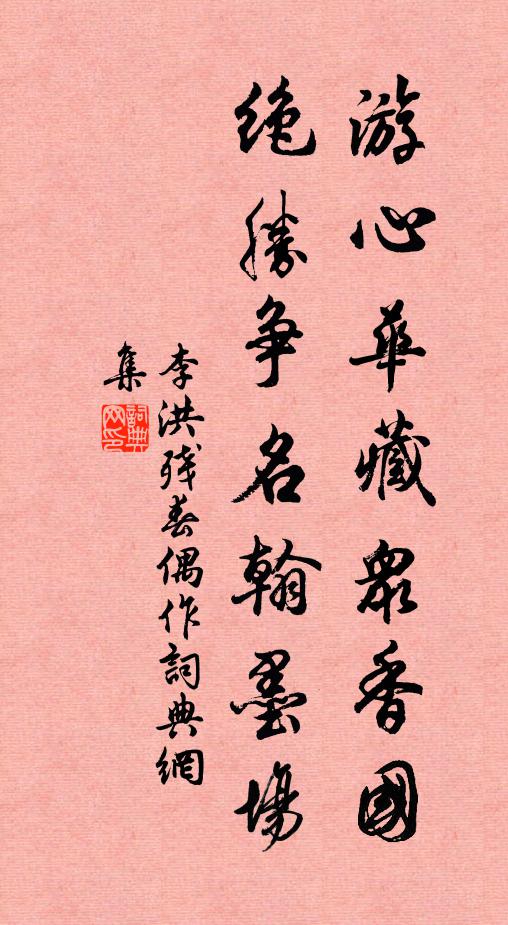 游心華藏眾香國
绝勝争名翰墨場
李洪殘春偶作詞典網
集
詞典
网印